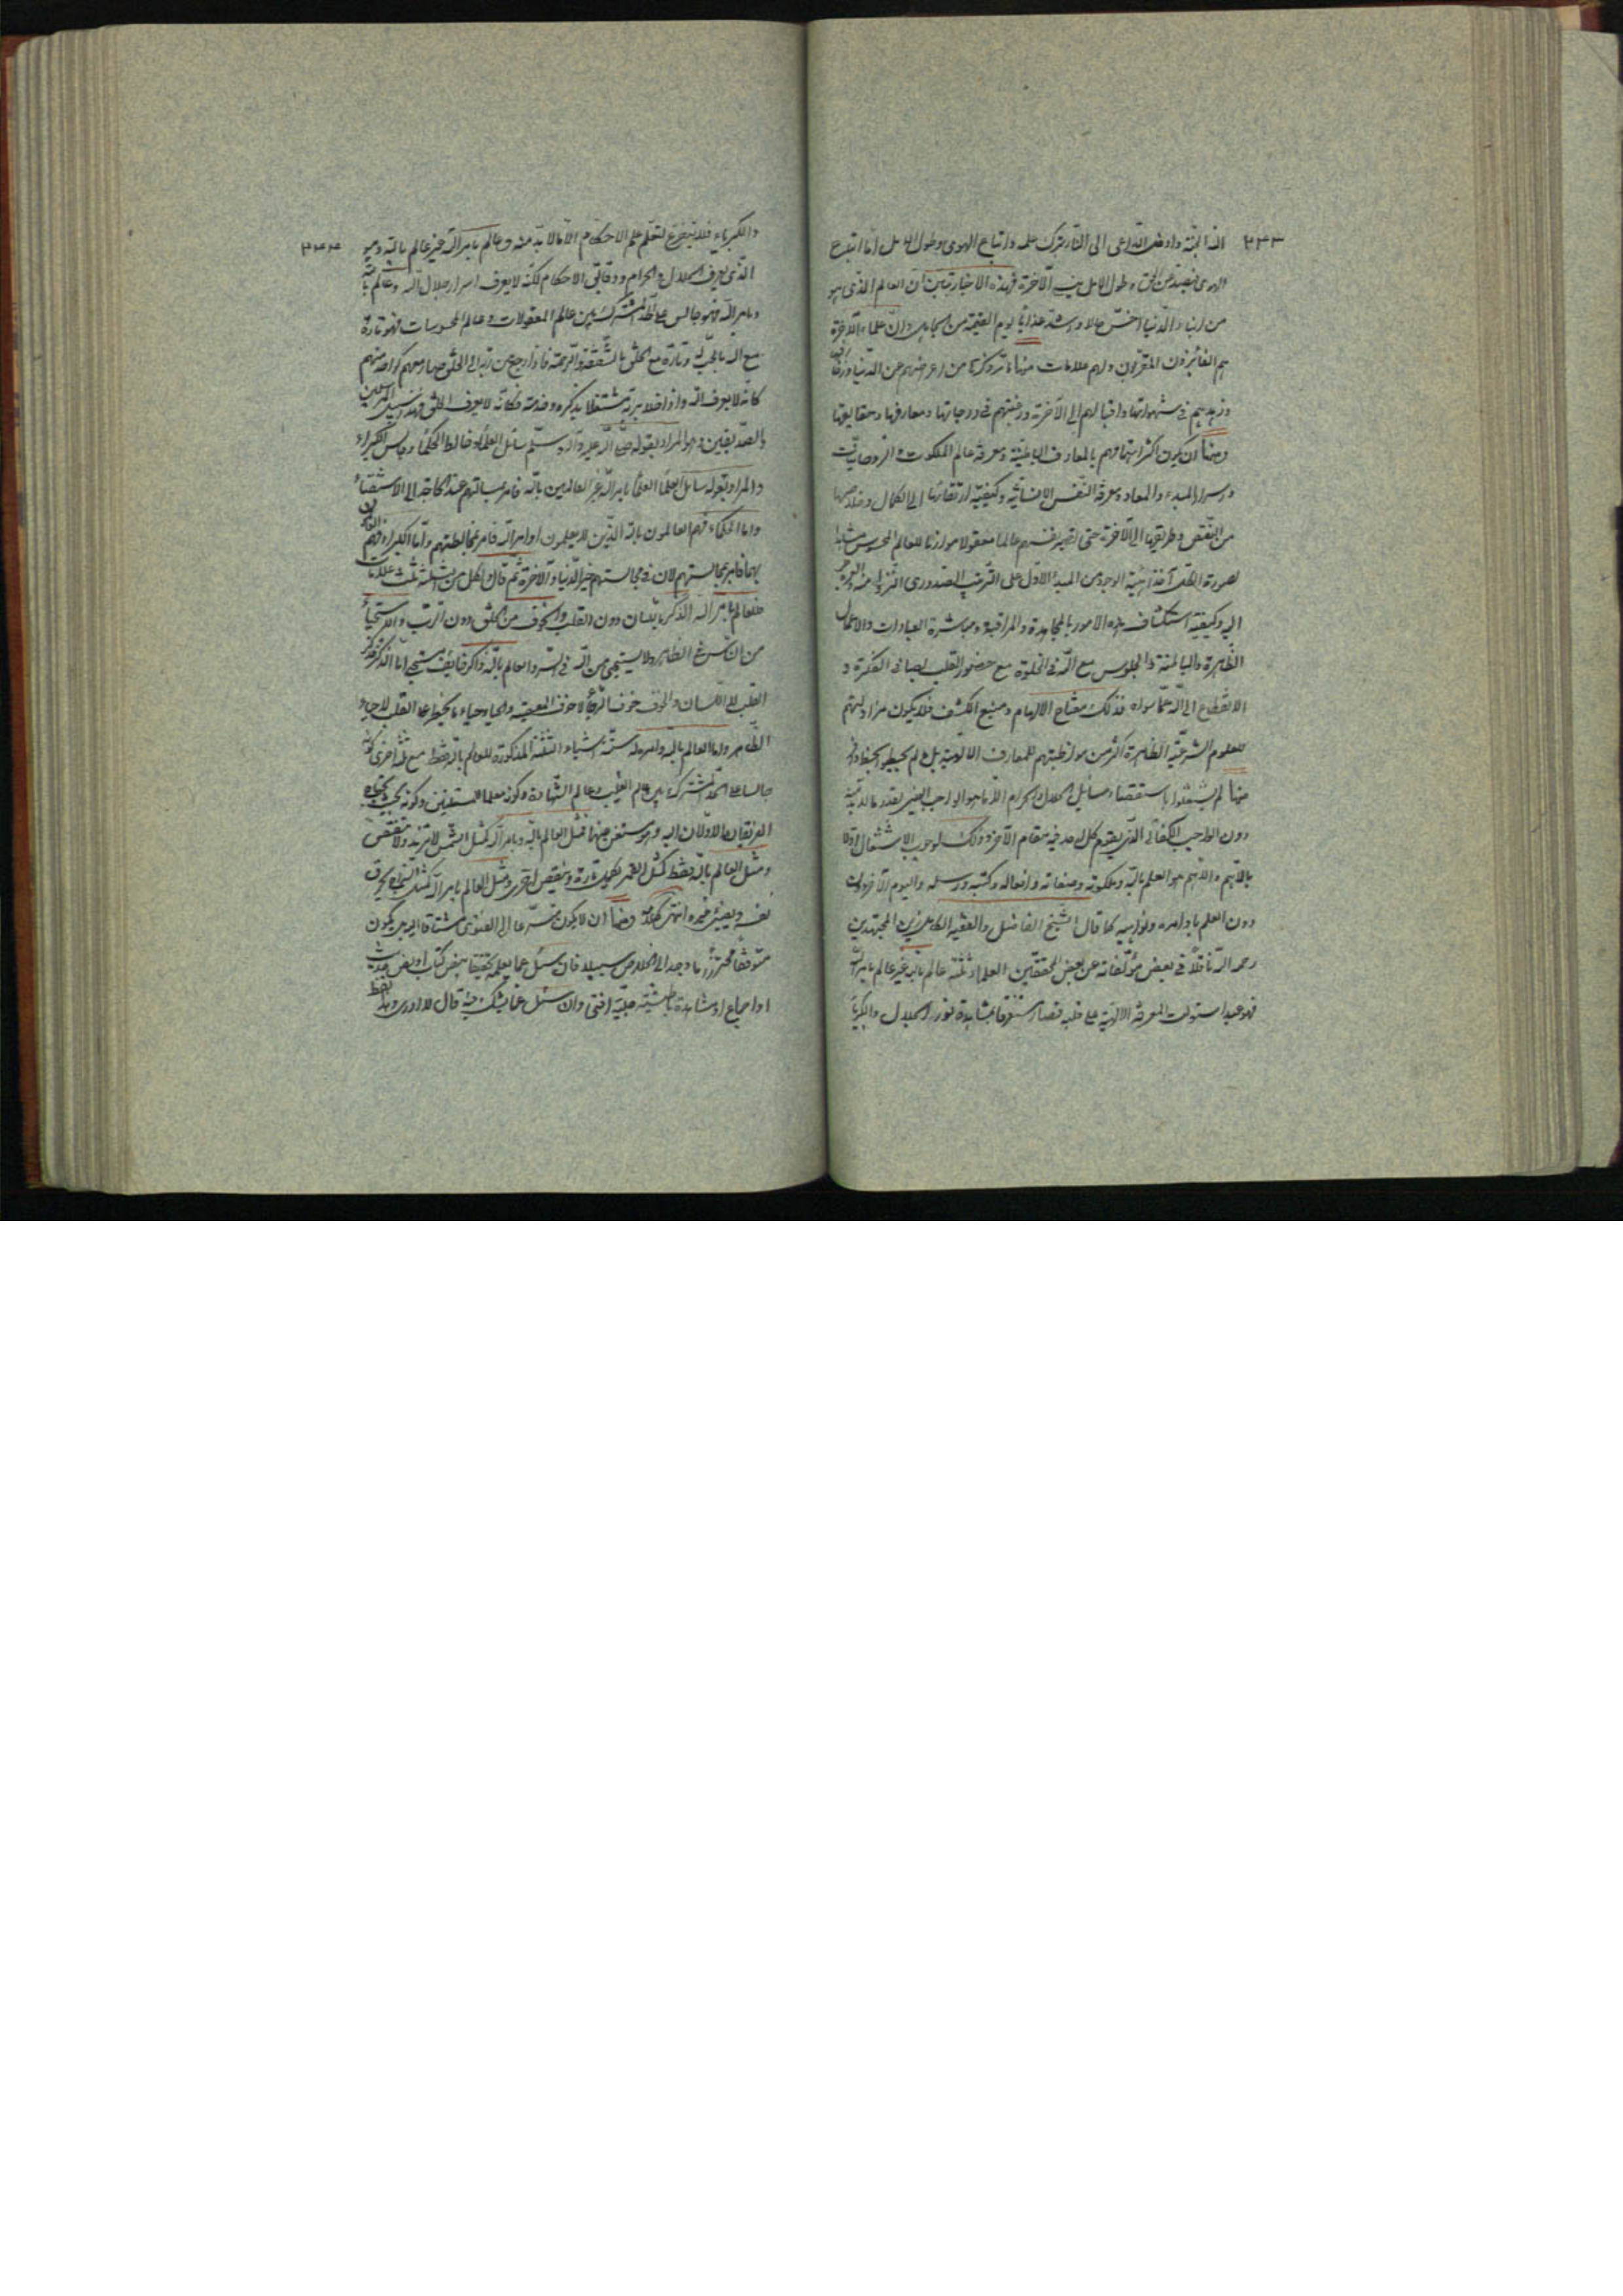 ٢٣٣ الله الجنّة وادخل الدّاعى الى النّار بترك علمه واتباع الهوى وطول الامل امّا اتباع
الهوى فيصدّ عن الحق وطول الامل ينسى الآخرة فهذه الاخبار تبيّن ان العالم الذى هو
من ابناء الدّنيا اخسّ حالا واشدّ عذابا يوم القيمة من الجاهل وانّ علماء الآخرة
هم الفائزون المقرّبون ولهم علامات منها ما تر ذكره من اعراضهم عن الدّنيا وزخارفها
وزهدهم فى شهواتها واقبالهم الى الآخرة ورغبتهم فى درجاتها ومعارفها وحقايقها
ومنها ان يكون اكثر اهتمامهم بالمعارف الباطنيّة ومعرفة عالم الملكوت والرّوحانيّات
واسرار المبدء والمعاد ومعرفة النّفس الانسانيّة وكيفيّة ارتقائها الى الكمال وخلاصها
من النّقص وطريقها الى الآخرة حتى تصير نفسهم عالما معقولا موازنا للعالم المحسوس مشابها
لصورة الكل آخذا هيئة الوجود من المبدء الاوّل على الترتيب الصّدورى النزولى منه والعروجى
اليه وكيفية استكشاف هذه الامور بالمجاهدة والمراقبة ومباشرة العبادات والاعمال
الظّاهرة والباطنة والجلوس مع الله فى الخلوة مع حضور القلب بصافى الفكرة و
الانقطاع الى الله عمّا سواه فذلك مفتاح الالهام ومنبع الكشف فلا يكون مزاولتهم
للعلوم الشرعيّة الظاهرة اكثر من مواظبتهم للمعارف اللاهوتية بل
منها لم يشتغلوا باستقصاء مسائل الحلال والحرام الّا ما هو الواجب العينى بقدر ما لا بدّ منه
دون الواجب الكفائى الذى يقوم كل احد فيه مقام الآخر وذلك لوجوب الاشتغال اوّلا
بالاهم والاهم هو العلم بالله وملكوته وصفاته وافعاله وكتبه ورسله واليوم الآخر
دون العلم باوامره ونواهيه كما قال الشّيخ الفاضل والفقيه الكامل زين المجتهدين
رحمه الله ناقلاً فى بعض مؤلّفاته عن بعض المحققّين العلماء ثلثة عالم بالله غير عالم بامر الله
فهو عبد استولت المعرفة الالهيّة على قلبه فصار مستغرقا بمشاهدة نور الجلال والكبرياء
٢٣٤ والكبرياء فلا يتفرّغ لتعلّم علم الاحكام الّا ما لا بدّ منه وعالم بامر الله غير عالم بالله وهو
الّذى يعرف الحلال والحرام ودقائق الاحكام لكنّه لا يعرف اسرار جلال الله وعالم بالله
وبامر الله فهو جالس على الحدّ المشترك بين عالم المعقولات وعالم المحسوسات فهو تارة
مع الله بالحبّ له وتارة مع الخلق بالشّفقة والرّحمة فاذا رجع من ربّه الى الخلق صار معهم كواحد منهم
كانّه لا يعرف الله واذا خلا بربّه مشتغلا بذكره وخدمته فكانّه لا يعرف الخلق فهذا سبيل المرسلين
والصّدّيقين وهو المراد بقوله صلّى الله عليه وآله وسلّم سائل العلماء وخالط الحكماء وجالس الكبراء
والمراد بقوله سائل العلماء العلماء بامر الله غير العالمين بالله فامر بمسائلتهم عند الحاجة الى الاستفتاء
وامّا الحكماء فهم العالمون بالله الذين لا يعلمون اوامر الله فامر بمخالطتهم وامّا الكبراء فهم العالمون
بهما فامر بمجالستهم لان فى مجالستهم خير الدّنيا والآخرة ثمّ قال لكل من الثلثة ثلث علامات
فللعالم بامر الله الذكر باللّسان دون القلب والخوف من الخلق دون الربّ والاستحياء
من الناس فى الظاهر ولا يستحيى من الله فى السّر والعالم بالله ذاكر خائف مستحيى امّا الذكر فذكر
القلب لا اللّسان والخوف خوف الرّجاء لا خوف المعصية والحياء حياء ما يخطر على القلب لا حياء
الظّاهر وامّا العالم بالله وبامره له ستّة اشياء الثلثة المذكورة للعالم بالله فقط مع ثلثة اخرى كونه
جالسا على الحدّ المشترك بين عالم الغيب وعالم الشّهادة وكونه معلّما للمسلمين وكونه بحيث يحتاج
الفريقان الاوّلان اليه وهو مستغن عنهما فمثل العالم بالله وبامر الله كمثل الشّمس لا تزيد ولا تنقص
ومثل العالم بالله فقط كمثل القمر يكمل تارة وينقص اخرى ومثل العالم بامر الله كمثل السّراج يحرق
نفسه ويضيئ غيره انتهى كلامه ومنها ان لا يكون متسرّعا الى الفتوى مشتاقا اليه بل يكون
متوقّفاً محترزاً ما وجد الى الخلاص سبيلا فان سئل عمّا يعلمه تحقيقا بنص كتاب او بنص حديث
او اجماع او مشاهدة باطنيّة جليّة افتى وان سئل عمّا يشكّ فيه قال لا ادرى